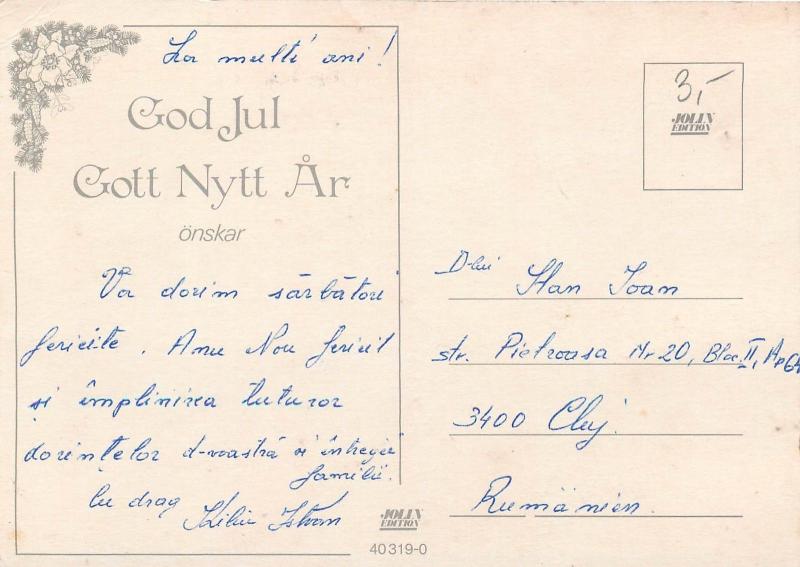 La multi ani!
God Jul
Gott Nytt År
önskar
Vă dorim sărbători
fericite. Anu Nou fericit
și împlinirea tuturor
dorințelor d-voastră și întregii
familii.
Cu drag
Istvan
JOLIN
EDITION
40319-0
3,-
JOLIN
EDITION
D-lui Stan Ioan
str. Pietroasa Nr 20, Bloc II, Ap 64
3400 Cluj.
Rumänien.